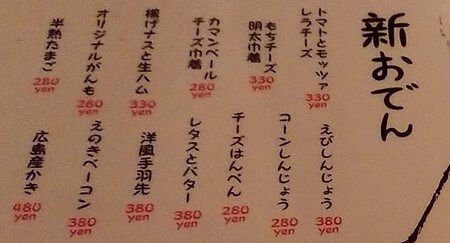 新おでん
トマトとモッツァ
レラチーズ
330
yen
もちチーズ
明太巾着
330
yen
カマンベール
チーズ巾着
280
yen
揚げナスと生ハム
330
yen
オリジナルがんも
280
yen
半熟たまご
280
yen
えびしんじょう
380
yen
コーンしんじょう
280
yen
チーズはんぺん
280
yen
レタスとバター
380
yen
洋風手羽先
380
yen
えのきベーコン
380
yen
広島産かき
480
yen